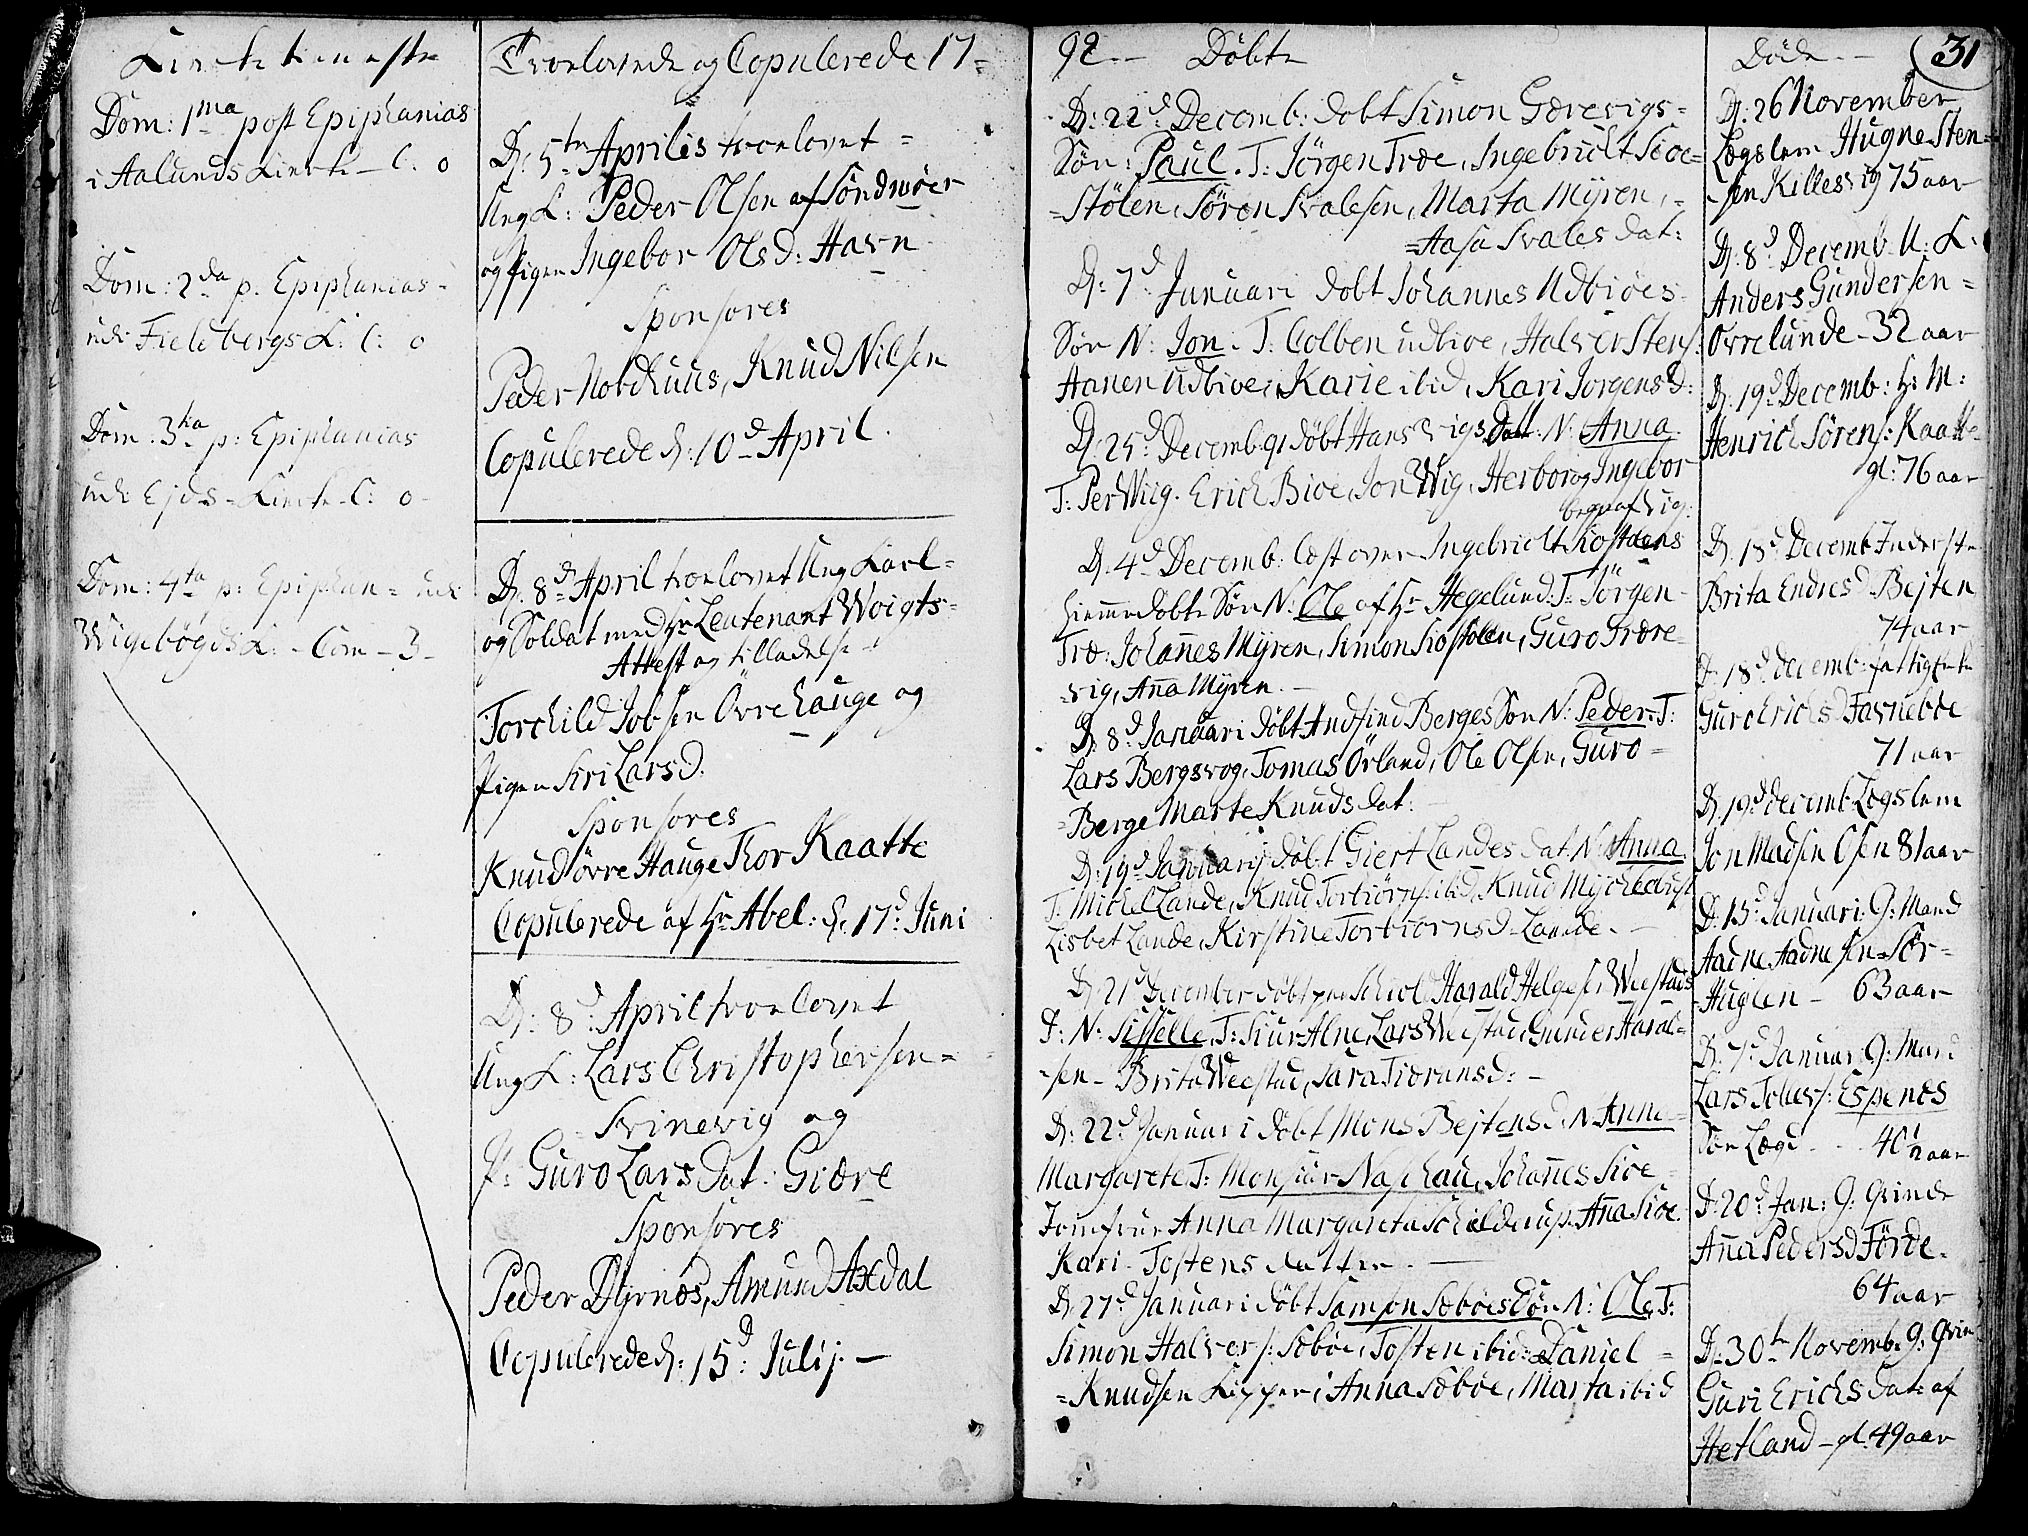 Kircketieneste
Dom: 1ma post Epiphanias
i Aalunds Kircke - C. 0
Dom: 2da p. Epiphanias -
udi Fieldbergs K: C: 0
Dom: 3tia p: Epiphanias
udi Ejds - Kircke - C: 0 -
Dom: 4ta p: Epiphan = udi
Wigebögds K: - Com - 3 -
Troelovede og Copulerede 17 =
D: 5te Aprilis troelovet =
Ung K: Peder Olsen af Söndmöer
og Pigen Ingebor Olsd: Havn
Sponsores
Peder Nordhuus, Knud Nilsen
Copulerede d: 10d April.
D: 8d April troelovet Ung Karl =
og Soldat med Hr Leutenant Woigts =
Attest og tilladelse -
Torchild Jobsen Övrehauge og
Pigen Siri Larsd.
Sponsores
Knud övre Hauge Thor Kaatte
Copulerede af Hr Abel: d. 17d Juni
D: 8d April troelovet
Ung K: Lars Christophersen =
Svinevig og
P: Guro Lars dat: Giære
Sponsores
Peder Dyrnæs, Amund Axdal
Copulerede d: 15d: Julij. -
92 - Döbte
D: 22d Decemb: döbt Simon Grærevigs =
Sön: Paul. T: Jörgen Træ, Ingebricht Sioe =
= Stölen, Sören Svalesen, Marta Myren, -
= Aasa Svales dat:
D: 7d Januari döbt Johannes Udbiöes
Sön N: Jon. T: Colben udbioe, Halver Stens:
Hanen Udbioe, Karie ibid, Kari Jorgensd:
D: 25d Decemb: 91 döbt Hans vigs datt: N: Anna
T: Per Wiig. Erich Bioe, Jon Wig, Herbor og Ingebor
begge af vig:
D. 4d Decemb: læst over Ingebricht Siostöens
hiemmedöbte Sön N: Ole af Hr Hegelund: T: Jörgen -
Træ: Johannes Myren, Simon Siostölen, Guro Grære =
- vig, Anna Myren. -
D 8d Januari döbt Andsind Berges Sön N: Peder. T:
Lars Bergsvog, Tomas Örland, Ole Olsen, Guro =
= Berge Marte Knudsdat: -
D: 19d Januarij döbt Giert Landes dat: N: Anna.
T: Michel Lande, Knud Torbiörns: ibid, Knud Myckebust
Lisbet Lande, Kirstine Torbiornsd Lande. -
D 21d December döbt Harald Helges: Weestads
D: N: Sisselle, T: Siur Alne, Lars Weestad, Gunder Haral =
- sen - Brita Weestad, Sara Tioransd: -
D. 22d Januari döbt Mons Bejtens d. N: Anne =
Margarete T: Monsiör Naschau, Johannes Sioe -
Jomfrue Anna Margareta Schielderup. Anna Sioe.
Kari Tostens datter. -
D. 27d Januari döbt Samson Sæböes Sön N: Ole, T:
Simon Halvers: Sæböe, Tosten ibid: Daniel =
= Knudsen Kipper: Anna Sæböe, Marta ibid
Döde. - 31
D: 26 November
Lægslem Hugne Sten =
- sen Killesvig 75 aar
D. 8d Decemb U: K:
Anders Gundersen =
Ovrelunde - 32 aar
D. 19d Decemb: h: M:
Henrich Sörens: Kaatte
gl: 76 aar
D. 18d Decemb Inderste
Brita Endresd. Bejten
74 aar
D: 18d Decemb: fattig
Guro Erichsd Favneboe
71 aar
D 19d decemb Lægslem
Jon Madsen Osen 81 aar
D: 15d Januari: G: Mand
Aadne Aadnesen Sör =
- Hugten - 63 aar
D. 7d Januari G: Mand
Lars Tolievs: Espenæs
Sön Lægd. - 40 1/2 aar
D 20d Jan: G: Qvinde
Anna Pedersd Förde.
64 aar
D 30te Novemb. G: Qvin
Guri Erichsdat: af
Hetland - gl. 49 aar